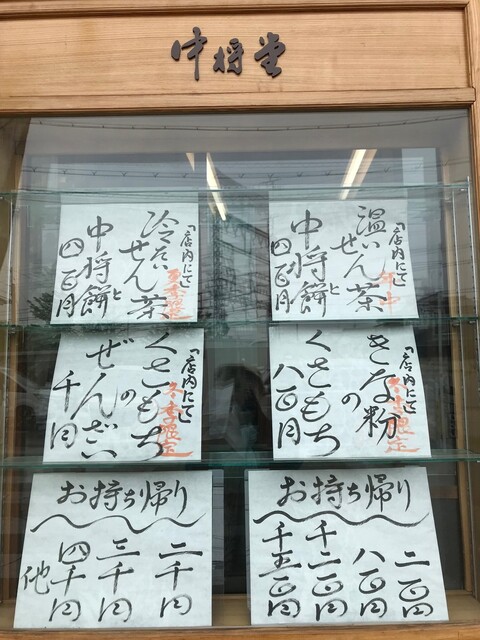 中将堂
「店内にて」
年中
温いせん茶
と
中将餅
四百円
「店内にて」
夏季限定
冷たいせん茶
と
中将餅
四百円
「店内にて」
冬季限定
きな粉
の
くさもち
八百円
「店内にて」
冬季限定
くさもち
の
ぜんざい
千円
お持ち帰り
二百円
八百円
千二百円
千五百円
お持ち帰り
二千円
三千円
四千円
他